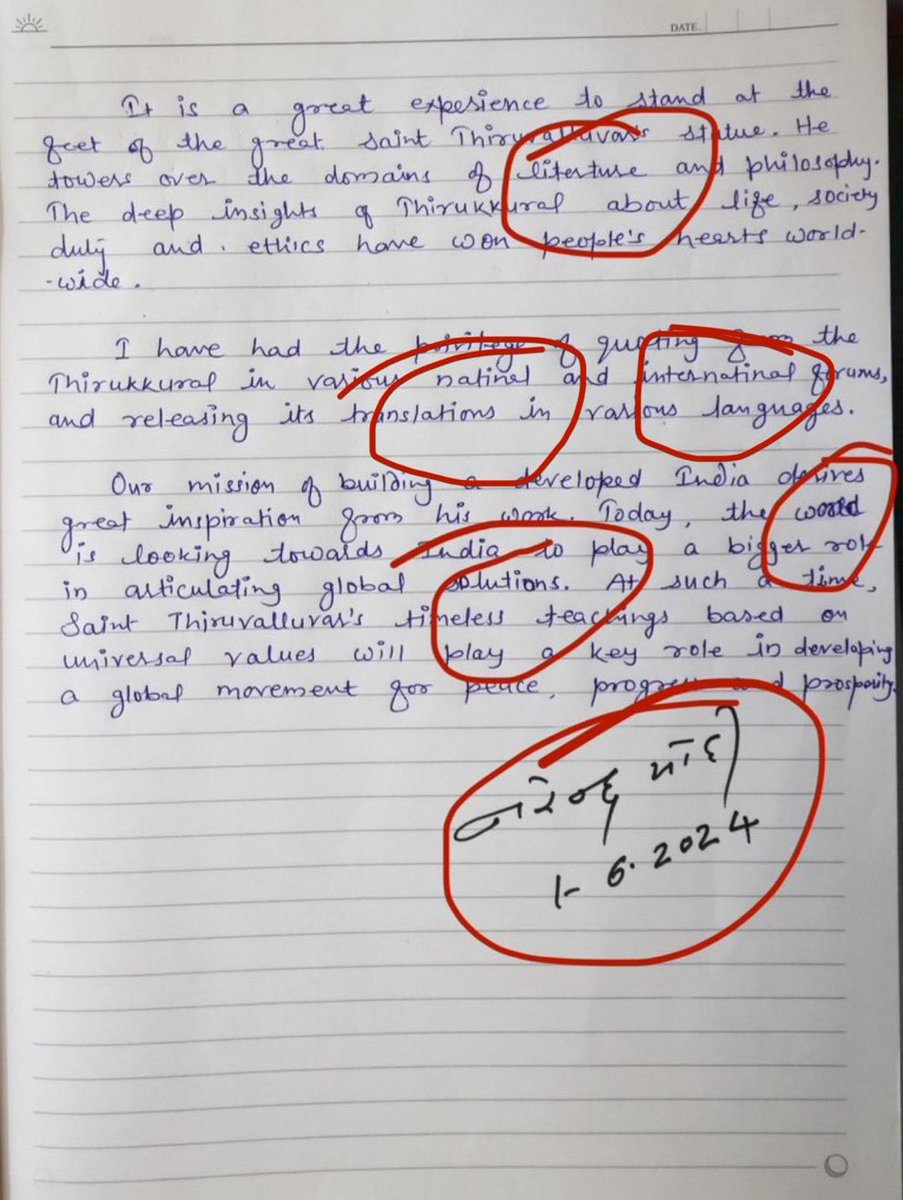 DATE
It is a great experience to stand at the
feet of the great saint Thiruvalluvar's statue. He
towers over the domains of literture and philosophy.
The deep insights of Thirukkural about life, society
duty and. ethics have won people's hearts world-
-wide.
I have had the privilege of quoting from the
Thirukkural in various natinal and internatinal forums,
and releasing its translations in various languages.
Our mission of building a developed India derives
great inspiration from his work. Today, the world
is looking towards India to play a bigger role
in articulating global solutions. At such a time,
Saint Thiruvalluvar's timeless teachings based on
universal values will play a key role in developing
a global movement for peace, progress and prosperity.
નરેન્દ્ર મોદી
1-6.2024